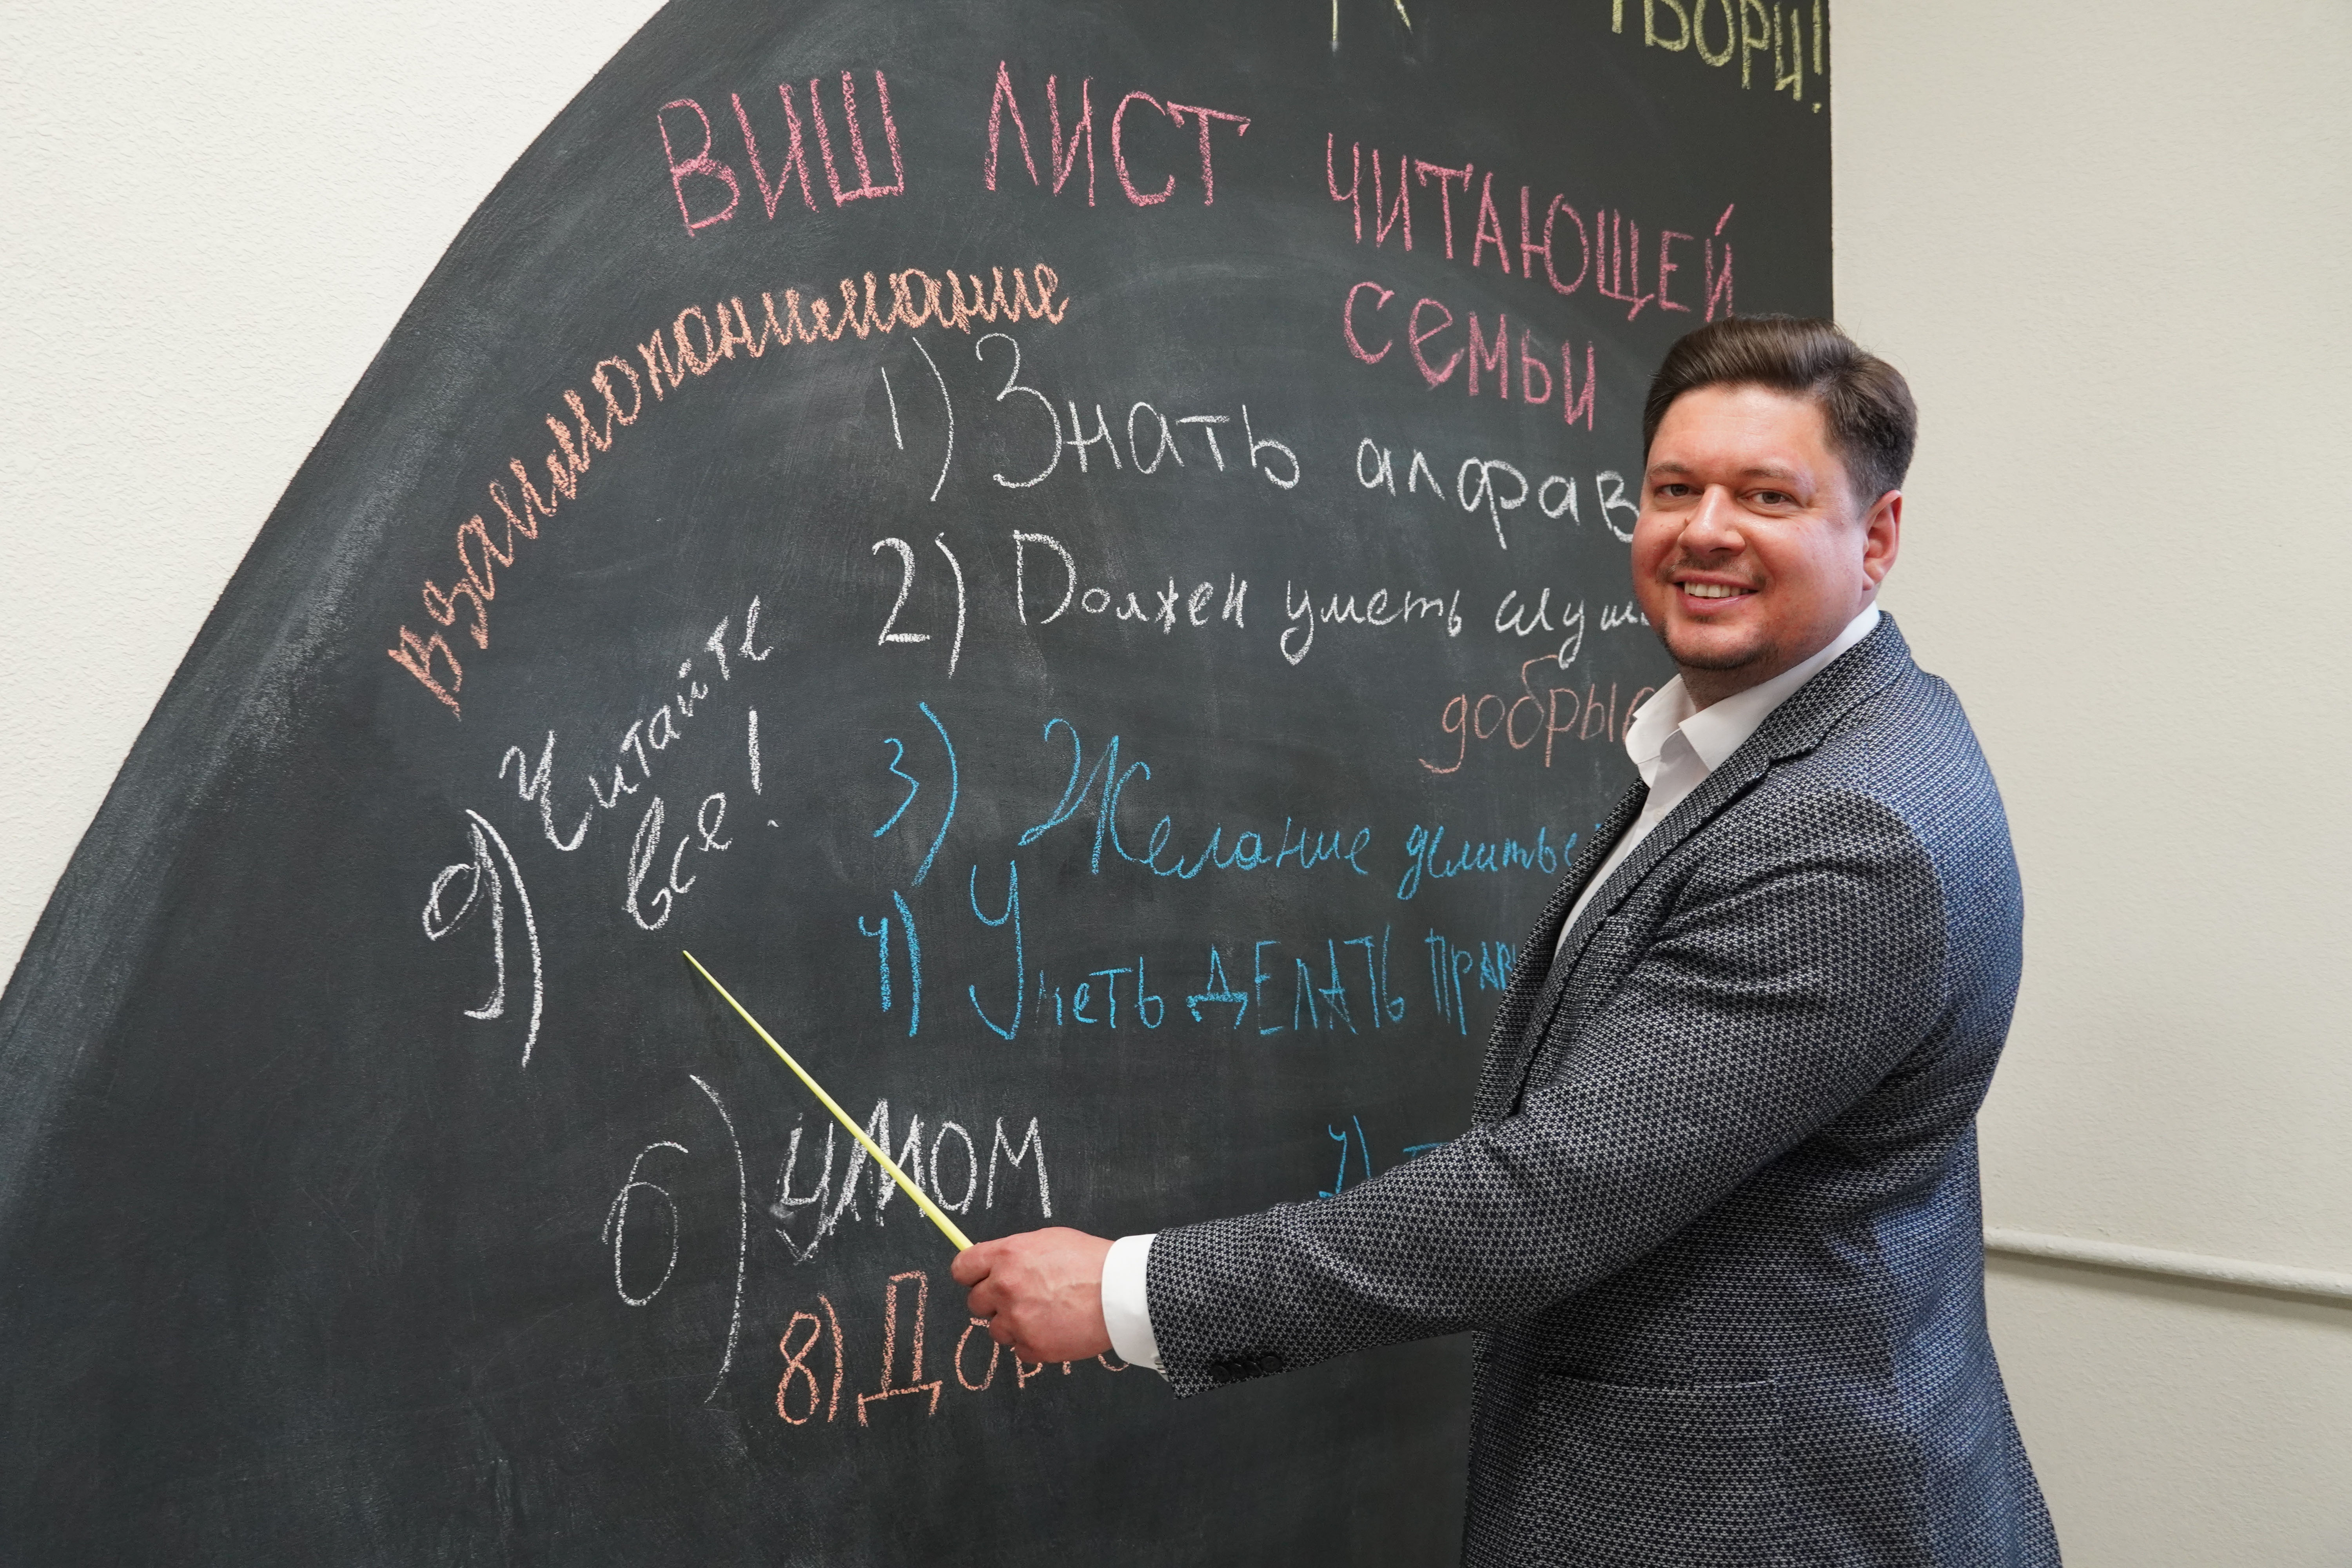 ТВОРЦ!
ВИШ ЛИСТ ЧИТАЮЩЕЙ
СЕМЬИ
взаимопонимание
1) Знать алфав
2) Должен уметь слуш
добрые
3) Желание делитьс
4) Уметь ДЕЛАТЬ ПРАВ
9) Читайте
все!
6) УМОМ
7)
8) До